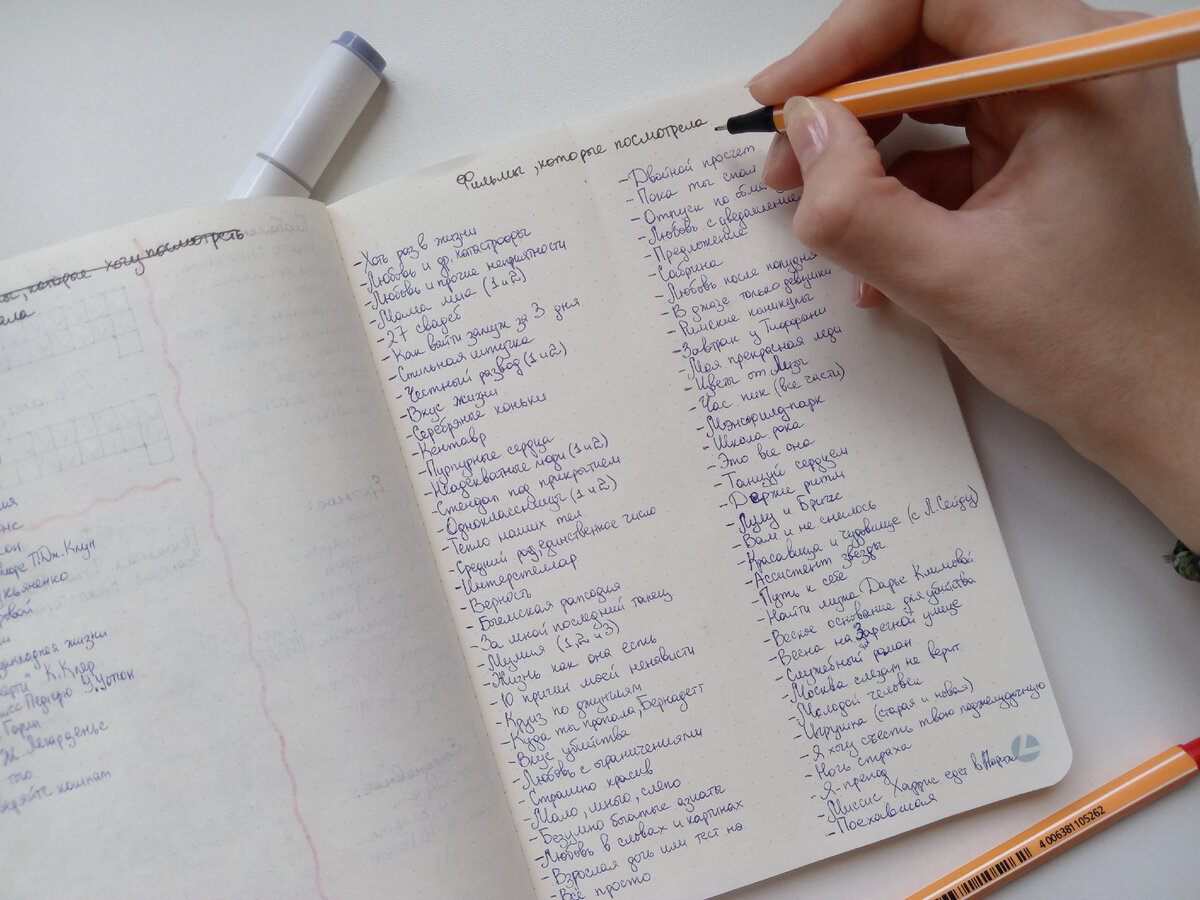 , которые хочу посмотреть
П.Дж. Клун
жизни
К. Клэр
Гарги
кошкам
Фильмы, которые посмотрела
-Хоть раз в жизни
-Любовь и др. катастрофы
-Любовь и прочие неприятности
-Мама миа (1 и 2)
-27 свадеб
-Как выйти замуж за 3 дня
-Стильная штучка
-Честный развод (1 и 2)
-Вкус жизни
-Серебряные коньки
-Кентавр
-Пурпурные сердца
-Неадекватные люди (1 и 2)
-Стендап под прикрытием
-Одноклассницы (1 и 2)
-Тепло наших тел
-Средний род, единственное число
-Интерстеллар
-Верность
-Богемская рапсодия
-За мной последний танец
-Мумия (1, 2 и 3)
-Жизнь как она есть
-10 причин моей ненависти
-Круиз по джунглям
-Куда ты пропала, Бернадетт
-Вкус убийства
-Любовь с ограничениями
-Страшно красив
-Мало, много, слепо
-Безумно богатые азиаты
-Любовь в словах и картинах
-Взрослая дочь или тест на
-Всё просто
-Двойной просчет
-Пока ты спал
-Отпуск по
-Любовь с уведомлением
-Предложение
-Сабрина
-Любовь после полудня
-В джазе только девушки
-Римские каникулы
-Завтрак у Тиффани
-Моя прекрасная леди
-Цветы от Лизы
-Час пик (все части)
-Мэнсфилд-парк
-Школа рока
-Это все она
-Танцуй сердцем
-Держи ритм
-Лулу и Бриггс
-Вам и не снилось
-Красавица и чудовище (с Л. Сейду)
-Ассистент звезды
-Путь к себе
-Найти мужа Дарье Климовой
-Веское основание для убийства
-Весна на Заречной улице
-Служебный роман
-Москва слезам не верит
-Молодой человек
-Игрушка (старая и новая)
-Я хочу съесть твою поджелудочную
-Ночь страха
-Я - препод
-Миссис Харрис едет в Париж
-Поехавшая
4 006381105262